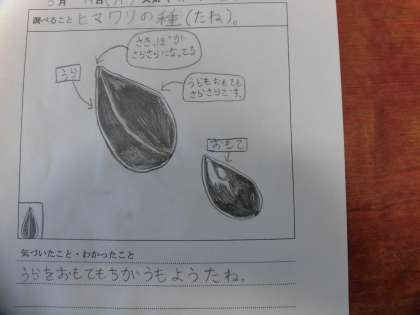 調べること ヒマワリの種(たね)。
さきっぽが
さらさらになってる
うら
うらもおもても
さらさらです。
おもて
気づいたこと・わかったこと
うらをおもてもちがうもようたね。